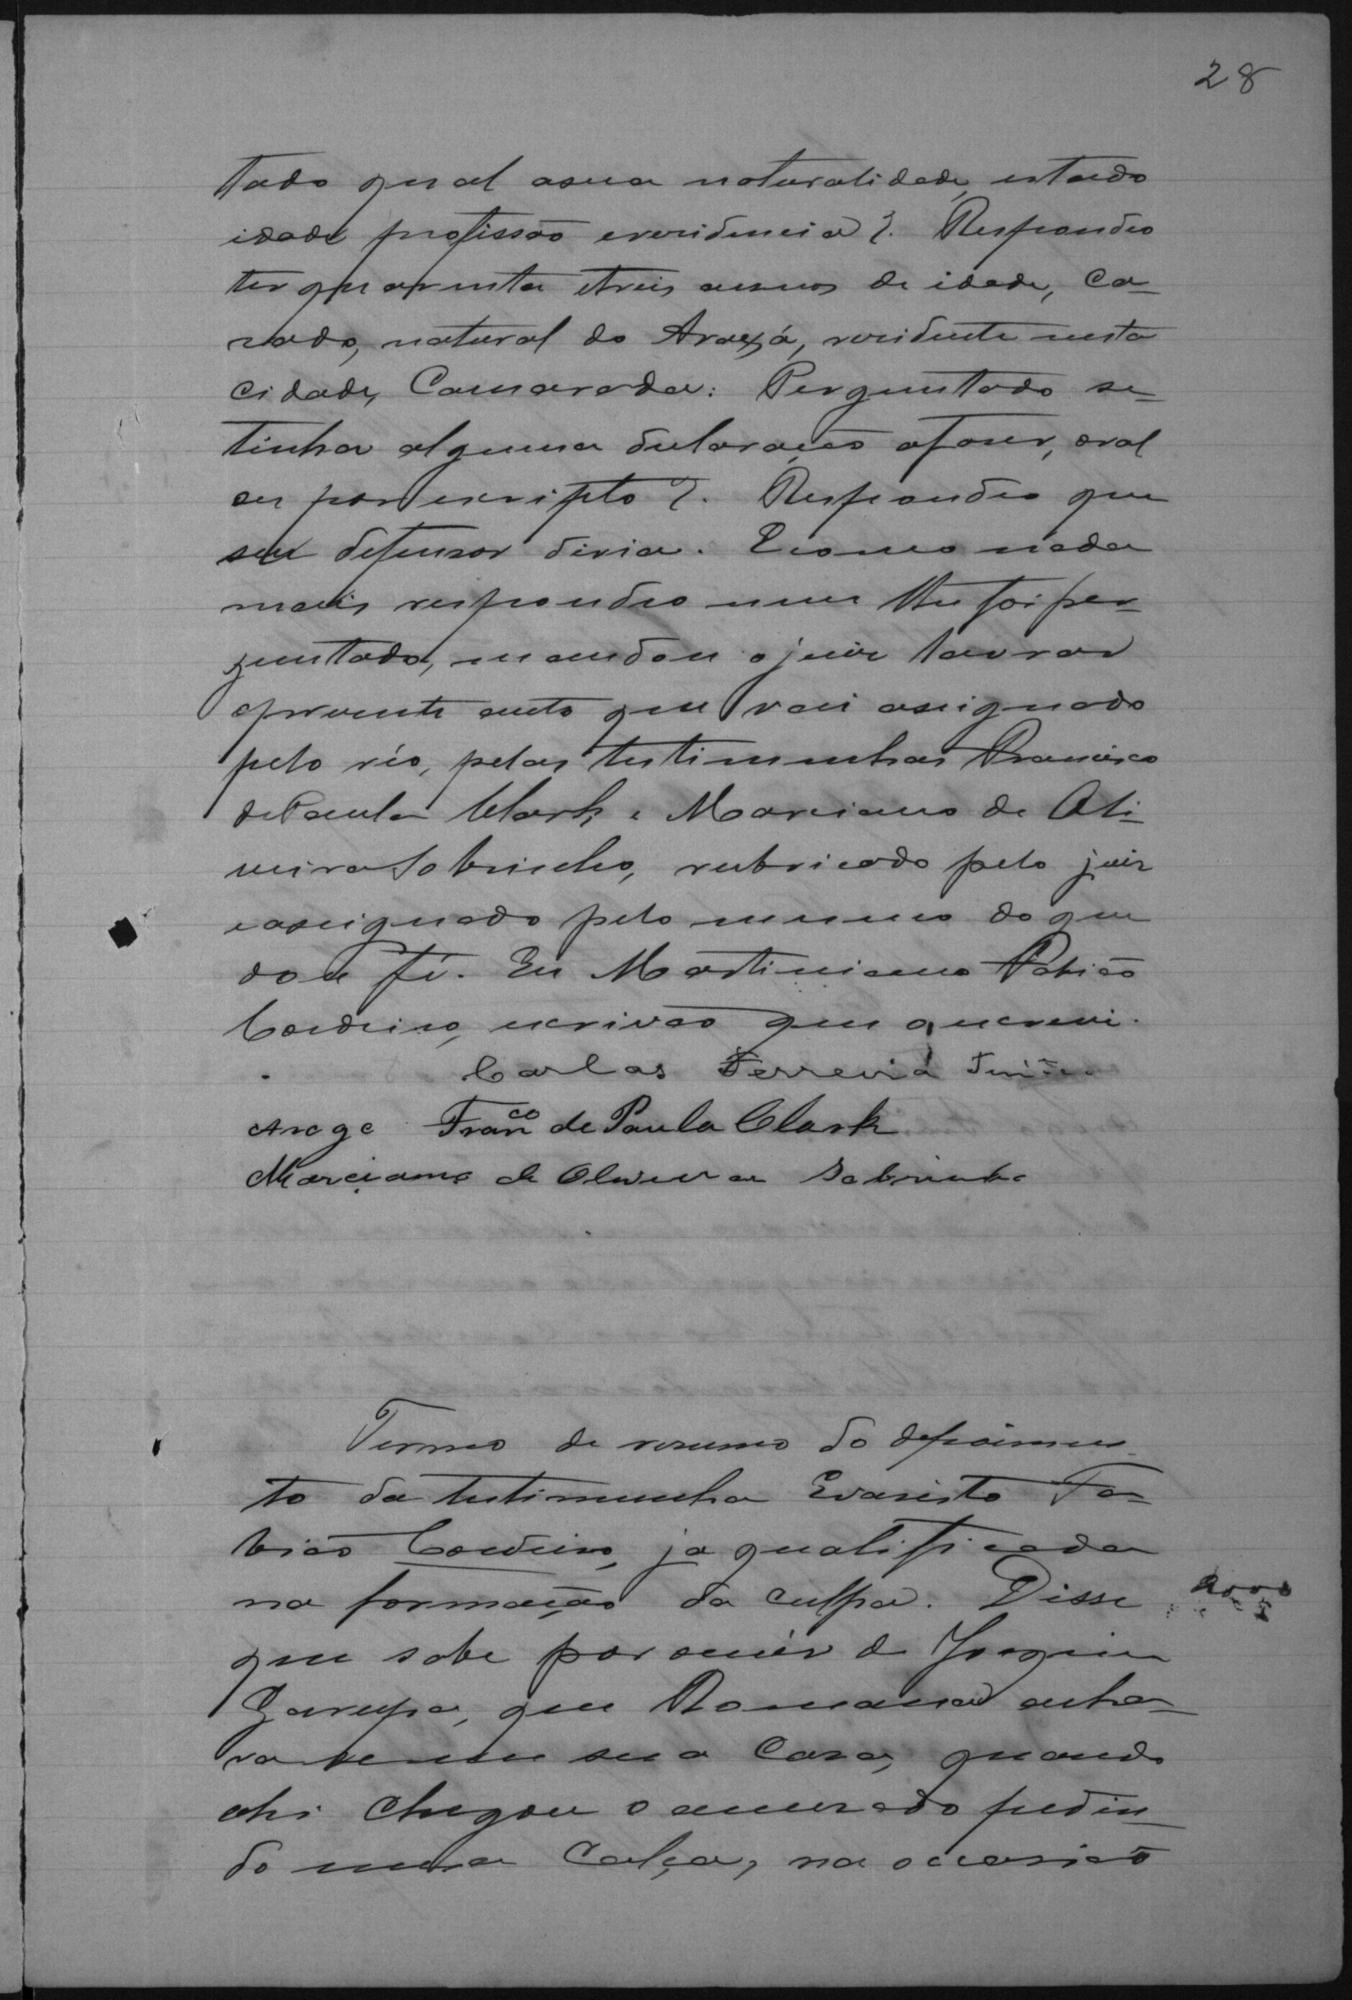 28
tado qual asua naturalidade, estado
idade profissão eresidencia?. Respondeo
ter quarenta etreis annos de idade, ca-
zado, natural do Araxá, residente nesta
cidade, Camarada: Perguntado se-
tinha alguma declaração afaser, oral
ou por escripto?. Respondeo que
seu defensor diria. Ecomo nada
mais respondeo nem lhe foi per-
guntado, mandou o juiz lavrar
opresente auto que vai assignado
pelo réo, pelas testimunhas Francisco
de Paula Clark, e Marciano de Oli-
veira Sobrinho, rubricado pelo juiz
eassignado pelo mesmo do que
dou fé. Eu Martiniano Fabião
Cordeiro, escrivão que o escrevi.
Carlos Ferreira
Fran.co de Paula Clark
Marciano de Oliveira Sobrinho
Termo de resumo do depoimen-
to da testimunha Evaristo Fa-
bião Cordeiro, ja qualificada
na formação da culpa. Disse
que sabe por ouvir de Joaquim
Garupa, que Romana acha-
va se em sua casa, quando
ahi chegou o accusado pedin-
do uma calça, na occasião